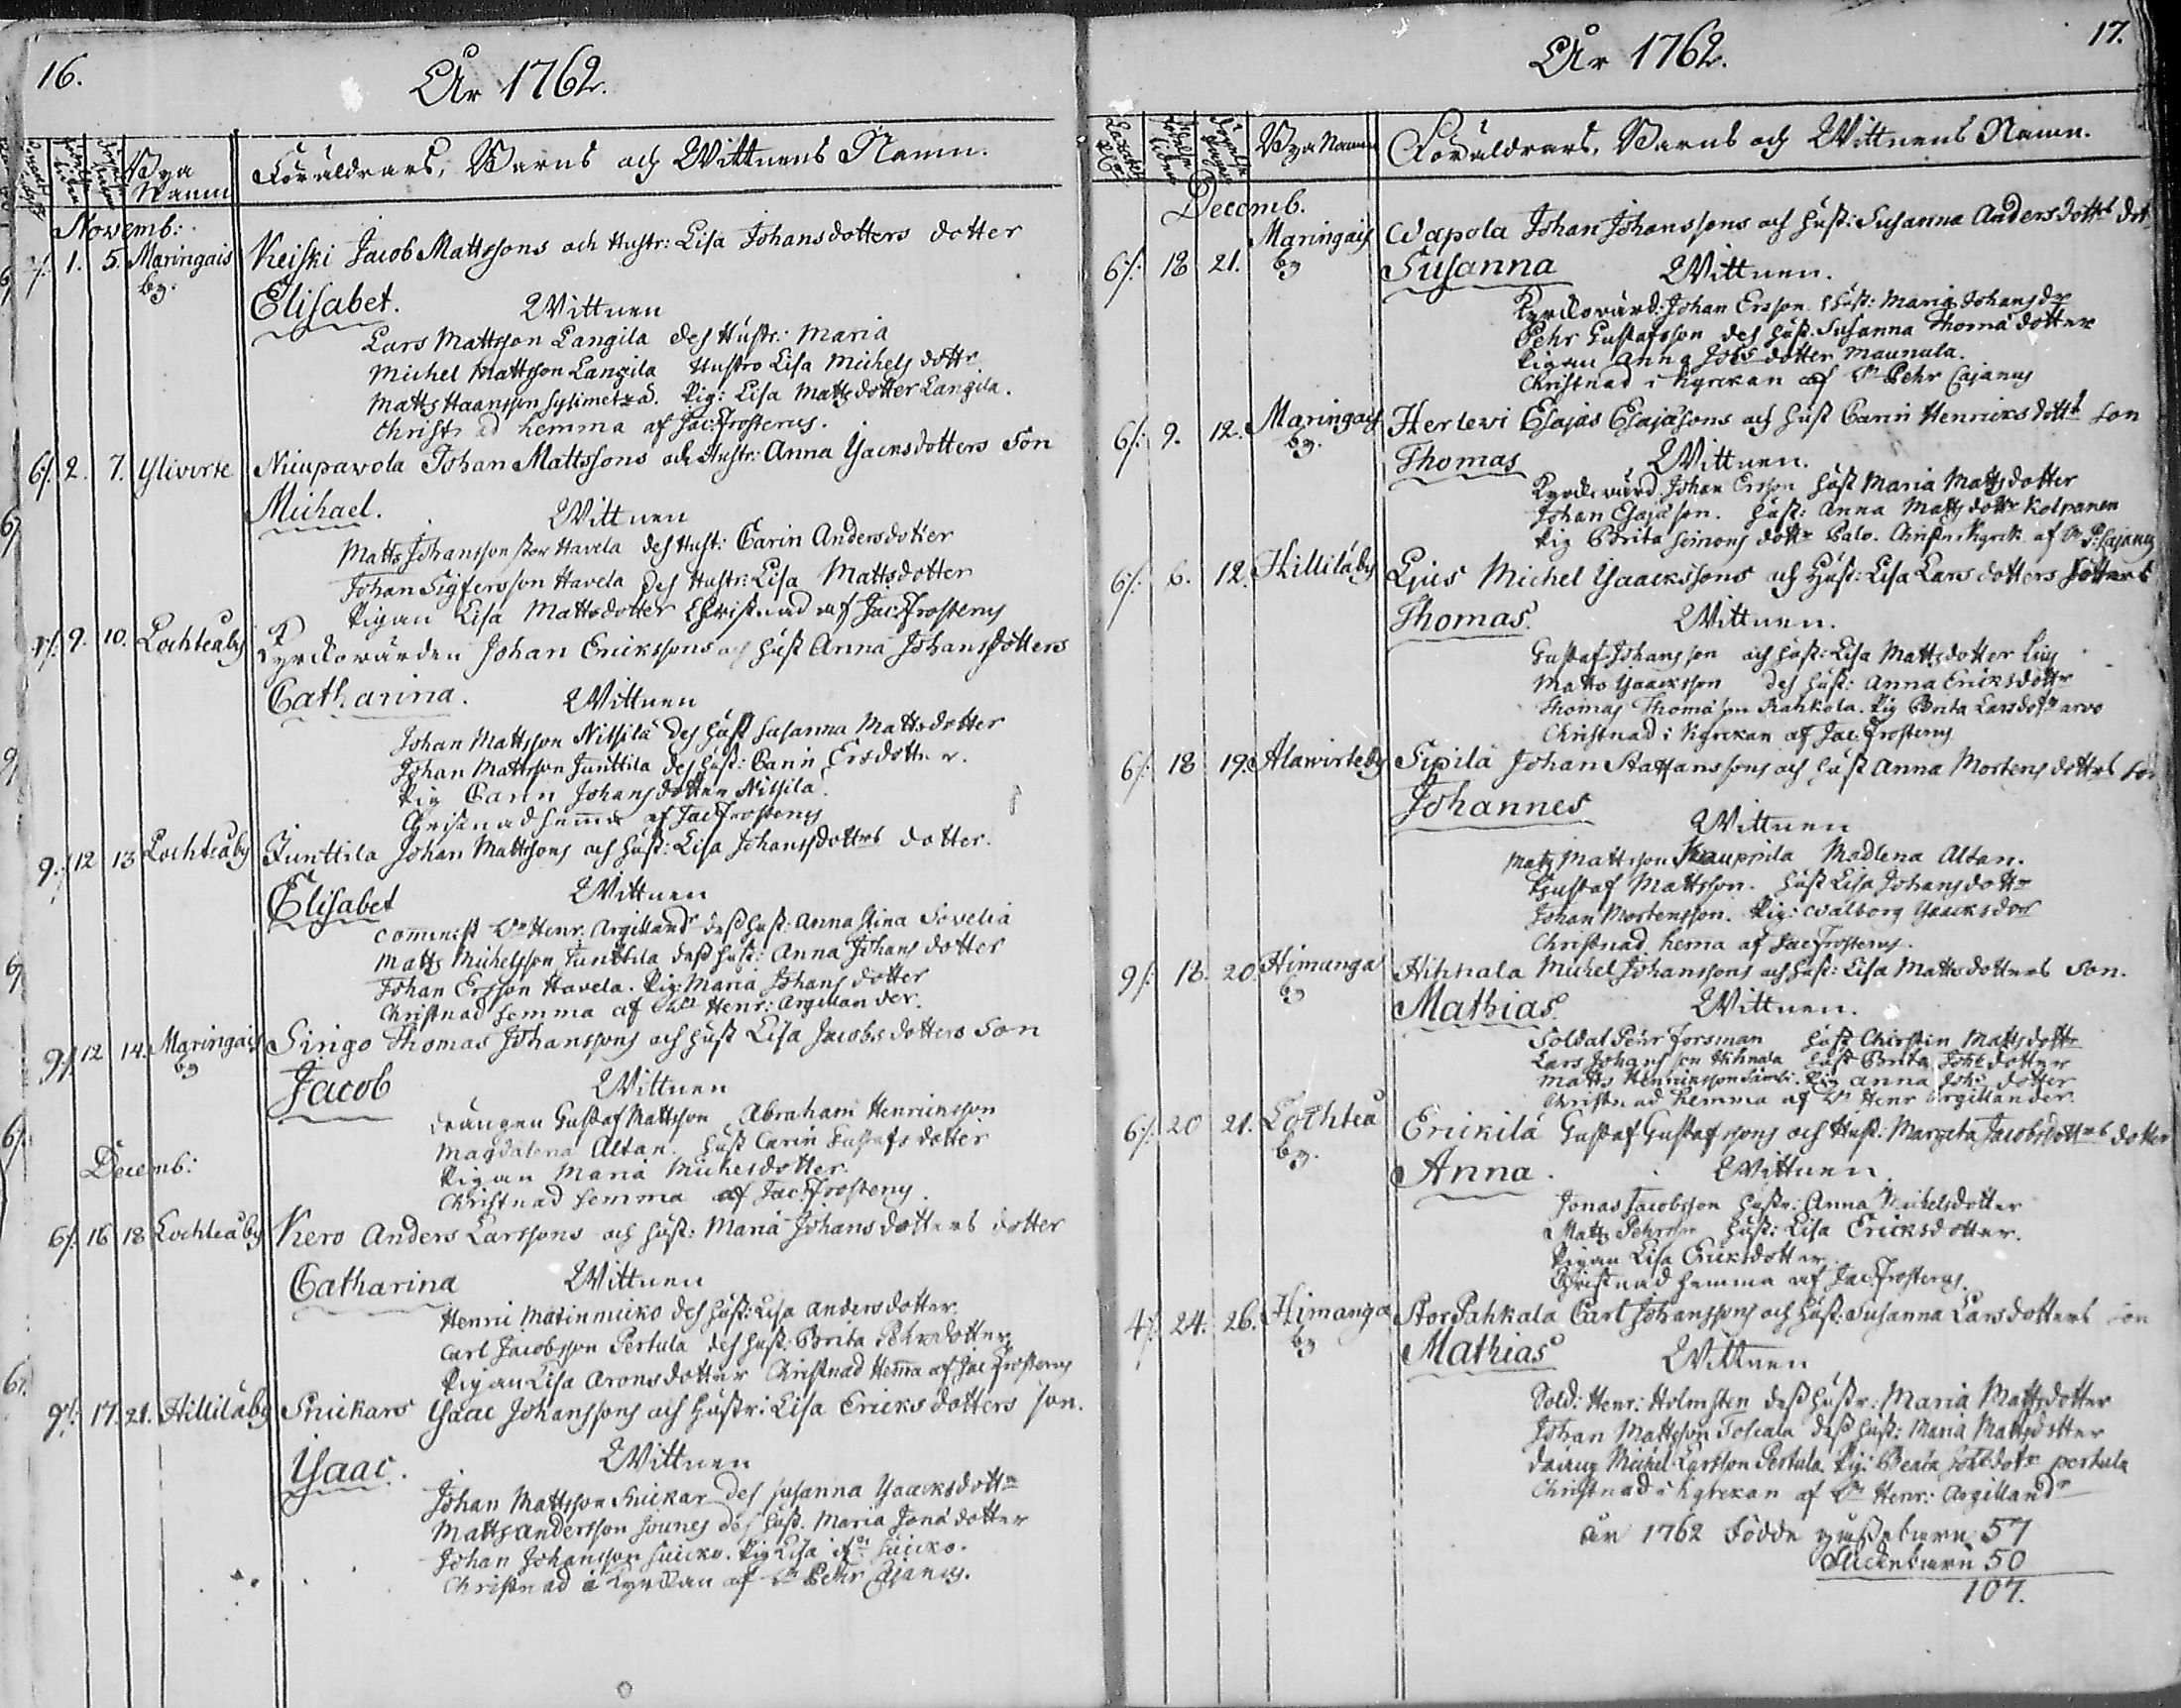 16.
År 1762.
Bya Namn Föräldrars, Barns och Wittnens Namn.
Novemb:
7/. 1. 5. Maringais by. Keiski Jacob Mattssons och Hustr: Lisa Johansdotters dotter
Elisabet. Wittnen
Lars Mattsson Langila des Hustr: Maria
Michel Mattsson Langila Hustro Lisa Michels dottr
Matts Haansson Pig: Lisa Mattsdotter Langila.
Christnad hemma af Jac: Frosterus.
6/. 2. 7. Ylivirre Niupavola Johan Mattssons och Hustr: Anna Yacksdotters Son
Michael. Wittnen
Matts Johansson stor Havela des Hust: Carin Andersdotter
Johan Sigfersson Havela des Hustr: Lisa Mattsdotter
Pigan Lisa Mattsdotter Christnad af Jac: Frosterus
9. 10. Lochteåby Kyrckowärden Johan Erickssons och Hust Anna Johansdotters
Catharina. Wittnen
Johan Mattsson Nissilä des Hust Susanna Mattsdotter
Johan Mattsson Junttila des Hust: Carin Ersdotter.
Pig Carin Johansdotter Nissila.
Christnad hemma af Jac Frosterus
9./. 12 13 Lochteåby Junttila Johan Mattssons och Hust: Lisa Johansdotters dotter.
Elisabet Wittnen
Comminist Hr Henr. Argilland des Hust: Anna Stina Sovelia
Matts Michelsson Junttila dess Hust: Anna Johans dotter
Johan Ersson Havela. Pig: Maria Johans dotter
Christnad hemma af Hr Henr: Argillander.
9/. 12 14. Maringais by Siirigo Thomas Johanssons och Hust Lisa Jacobsdotters Son
Jacob Wittnen
Drängen Gustaf Mattsson Abraham Henricksson
Magdalena Altan. Hust Carin Gustafs dotter
Pigan Maria Michelsdotter.
Christnad hemma af Jac: Frosterus.
Decemb:
6/. 16 18 Lochteåby Kero Anders Larssons och Hust: Maria Johansdotters dotter
Catharina Wittnen
Henric Matinmicko des Hust: Lisa Andersdotter.
Carl Jacobsson Pertula des Hust: Brita Pehrsdotter
Pigan Lisa Aronsdotter Christnad Hema af Jac Frosterus
9/. 17. 21. Hilliläby Snickars Ysaac Johanssons och Hustr: Lisa Ericksdotters son.
Ysaac. Wittnen
Johan Mattsson Snickar des Susanna Yaacksdottr
Matts Andersson Jounes des Hust. Maria Jonä dotter
Johan Johansson Juicko. Pig Lisa Juicko.
Christnad i Kyrckan af Hr Pehr Cajanus.
17.
År 1762.
Bya Namn Föräldrars, Barns och Wittnens Namn.
Decemb.
6/. 18 21. Maringais by Wapola Johan Johanssons och Hust: Susanna Andersdotters dot
Susanna Wittnen.
Kyrckowärd: Johan Ersson Hust: Maria Johansdr
Pehr Gustafsson des Hust. Susanna Thomä dotter
Pigan Anna Johs dotter Maunula.
Christnad i Kyrckan af Hr Pehr Cajanus
6/. 9. 12. Maringais by. Herlewi Esajas Esajäsons och Hust Carin Henricksdottr Son
Thomas Wittnen.
Kyrckowärd Johan Ersson Hust Maria Mattsdotter
Johan Esajäson. Hust: Anna Mattsdottr Kolpanen
Pig Brita Simons dottr Palo. Christn i Kyrck. af Hr P: Cajanus
6/. 6. 12. Hilliläby Ljus Michel Yaackssons och Hust: Lisa Larsdotters
Thomas. Wittnen.
Gustaf Johansson och Hust: Lisa Mattsdotter Ljus
Matts Yaacksson des Hust: Anna Ericksdottr
Thomas Thomäson Rahkola. Pig Brita Larsdottr arvo
Christnad i Kyrckan af Jac: Frosterus
6/. 18 19. Alawirreby Sipilä Johan Staffanssons och Hust Anna Mortensdotters Son
Johannes Wittnen
Mats Mattsson Kauppila Madlena Altan.
Gustaf Mattsson. Hust Lisa Johansdottr
Johan Mortensson. Pig: Walborg Yaacksdor
Christnad hema af Jac Frosterus.
9/. 18. 20. Himanga by Hihnala Michel Johanssons och Hust: Lisa Mattsdotters Son.
Mathias. Wittnen.
Soldat Pehr Forsman Hust Chirstin Mattsdottr
Lars Johansson Hihnala Hust Brita Johs dotter
Matts Henricksson Sämbi. Pig Anna Johs dotter
Christnad hemma af Hr Henr Argillander.
6/. 20 21. Lochteå by. Erickilä Gustaf Gustafssons och Hust: Margeta Jacobsdotters dotter
Anna. Wittnen
Jonas Jacobsson Hustr: Anna Michelsdotter
Matts Pehrsson Hust: Lisa Ericksdotter.
Pigan Lisa Ericksdotter.
Christnad hemma af Jac: Frosterus.
4/. 24. 26. Himanga by Stor Pahkala Carl Johanssons och Hust: Susanna Larsdotters son
Mathias Wittnen
Sold: Henr: Holmsten dess Hustr: Maria Mattsdotter
Johan Mattsson Toscala dess Hust: Maria Mattsdotter
dräng Michel Larsson Pertula. Pig: Beata Johs dotr pertula
Christnad i Kyrckan af Hr Henr: Argilland
år 1762 Födde gossebarn 57
Flickebarn 50
107.